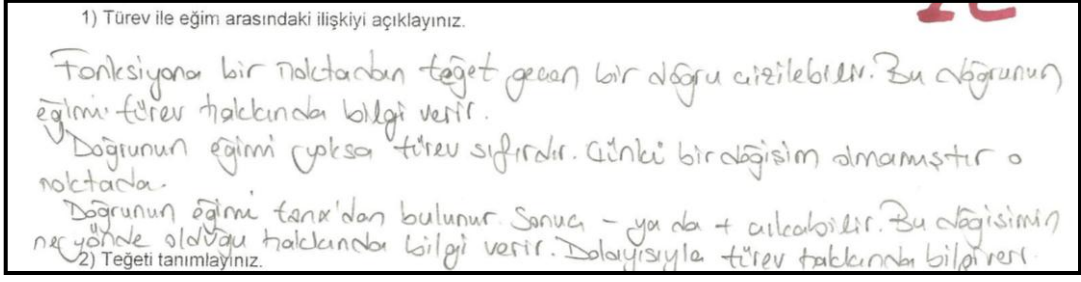 1) Türev ile eğim arasındaki ilişkiyi açıklayınız.
Fonksiyona bir noktadan teğet geçen bir doğru çizilebilir. Bu doğrunun
eğimi türev hakkında bilgi verir.
Doğrunun eğimi yoksa türev sıfırdır. Çünki bir değişim olmamıştır o
noktada.
Doğrunun eğimi tanα'dan bulunur. Sonuç - ya da + çıkabilir. Bu değişimin
ne yönde olduğu hakkında bilgi verir. Dolayısıyla türev hakkında bilgi verir.
2) Teğeti tanımlayınız.